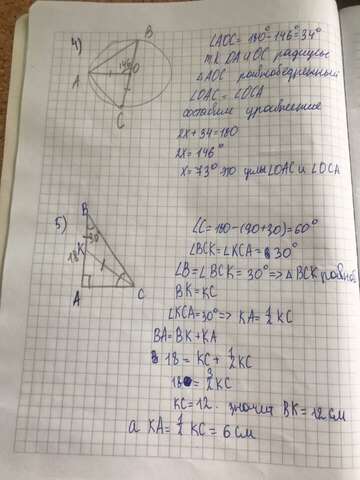 4)
B
146°
O
A
C
∠AOC = 180° - 146° = 34°
т.к. OA и OC радиусы
△AOC равнобедренный
∠OAC = ∠OCA
составим уравнение
2x + 34 = 180
2x = 146°
x = 73° это углы ∠OAC и ∠OCA
5)
B
30
18
K
A
C
∠C = 180 - (90+30) = 60°
∠BCK = ∠KCA = 30°
∠B = ∠BCK = 30° => △BCK равноб
BK = KC
∠KCA = 30° => KA = 1/2 KC
BA = BK + KA
18 = KC + 1/2 KC
18 = 3/2 KC
KC = 12. значит BK = 12 см
а KA = 1/2 KC = 6 см